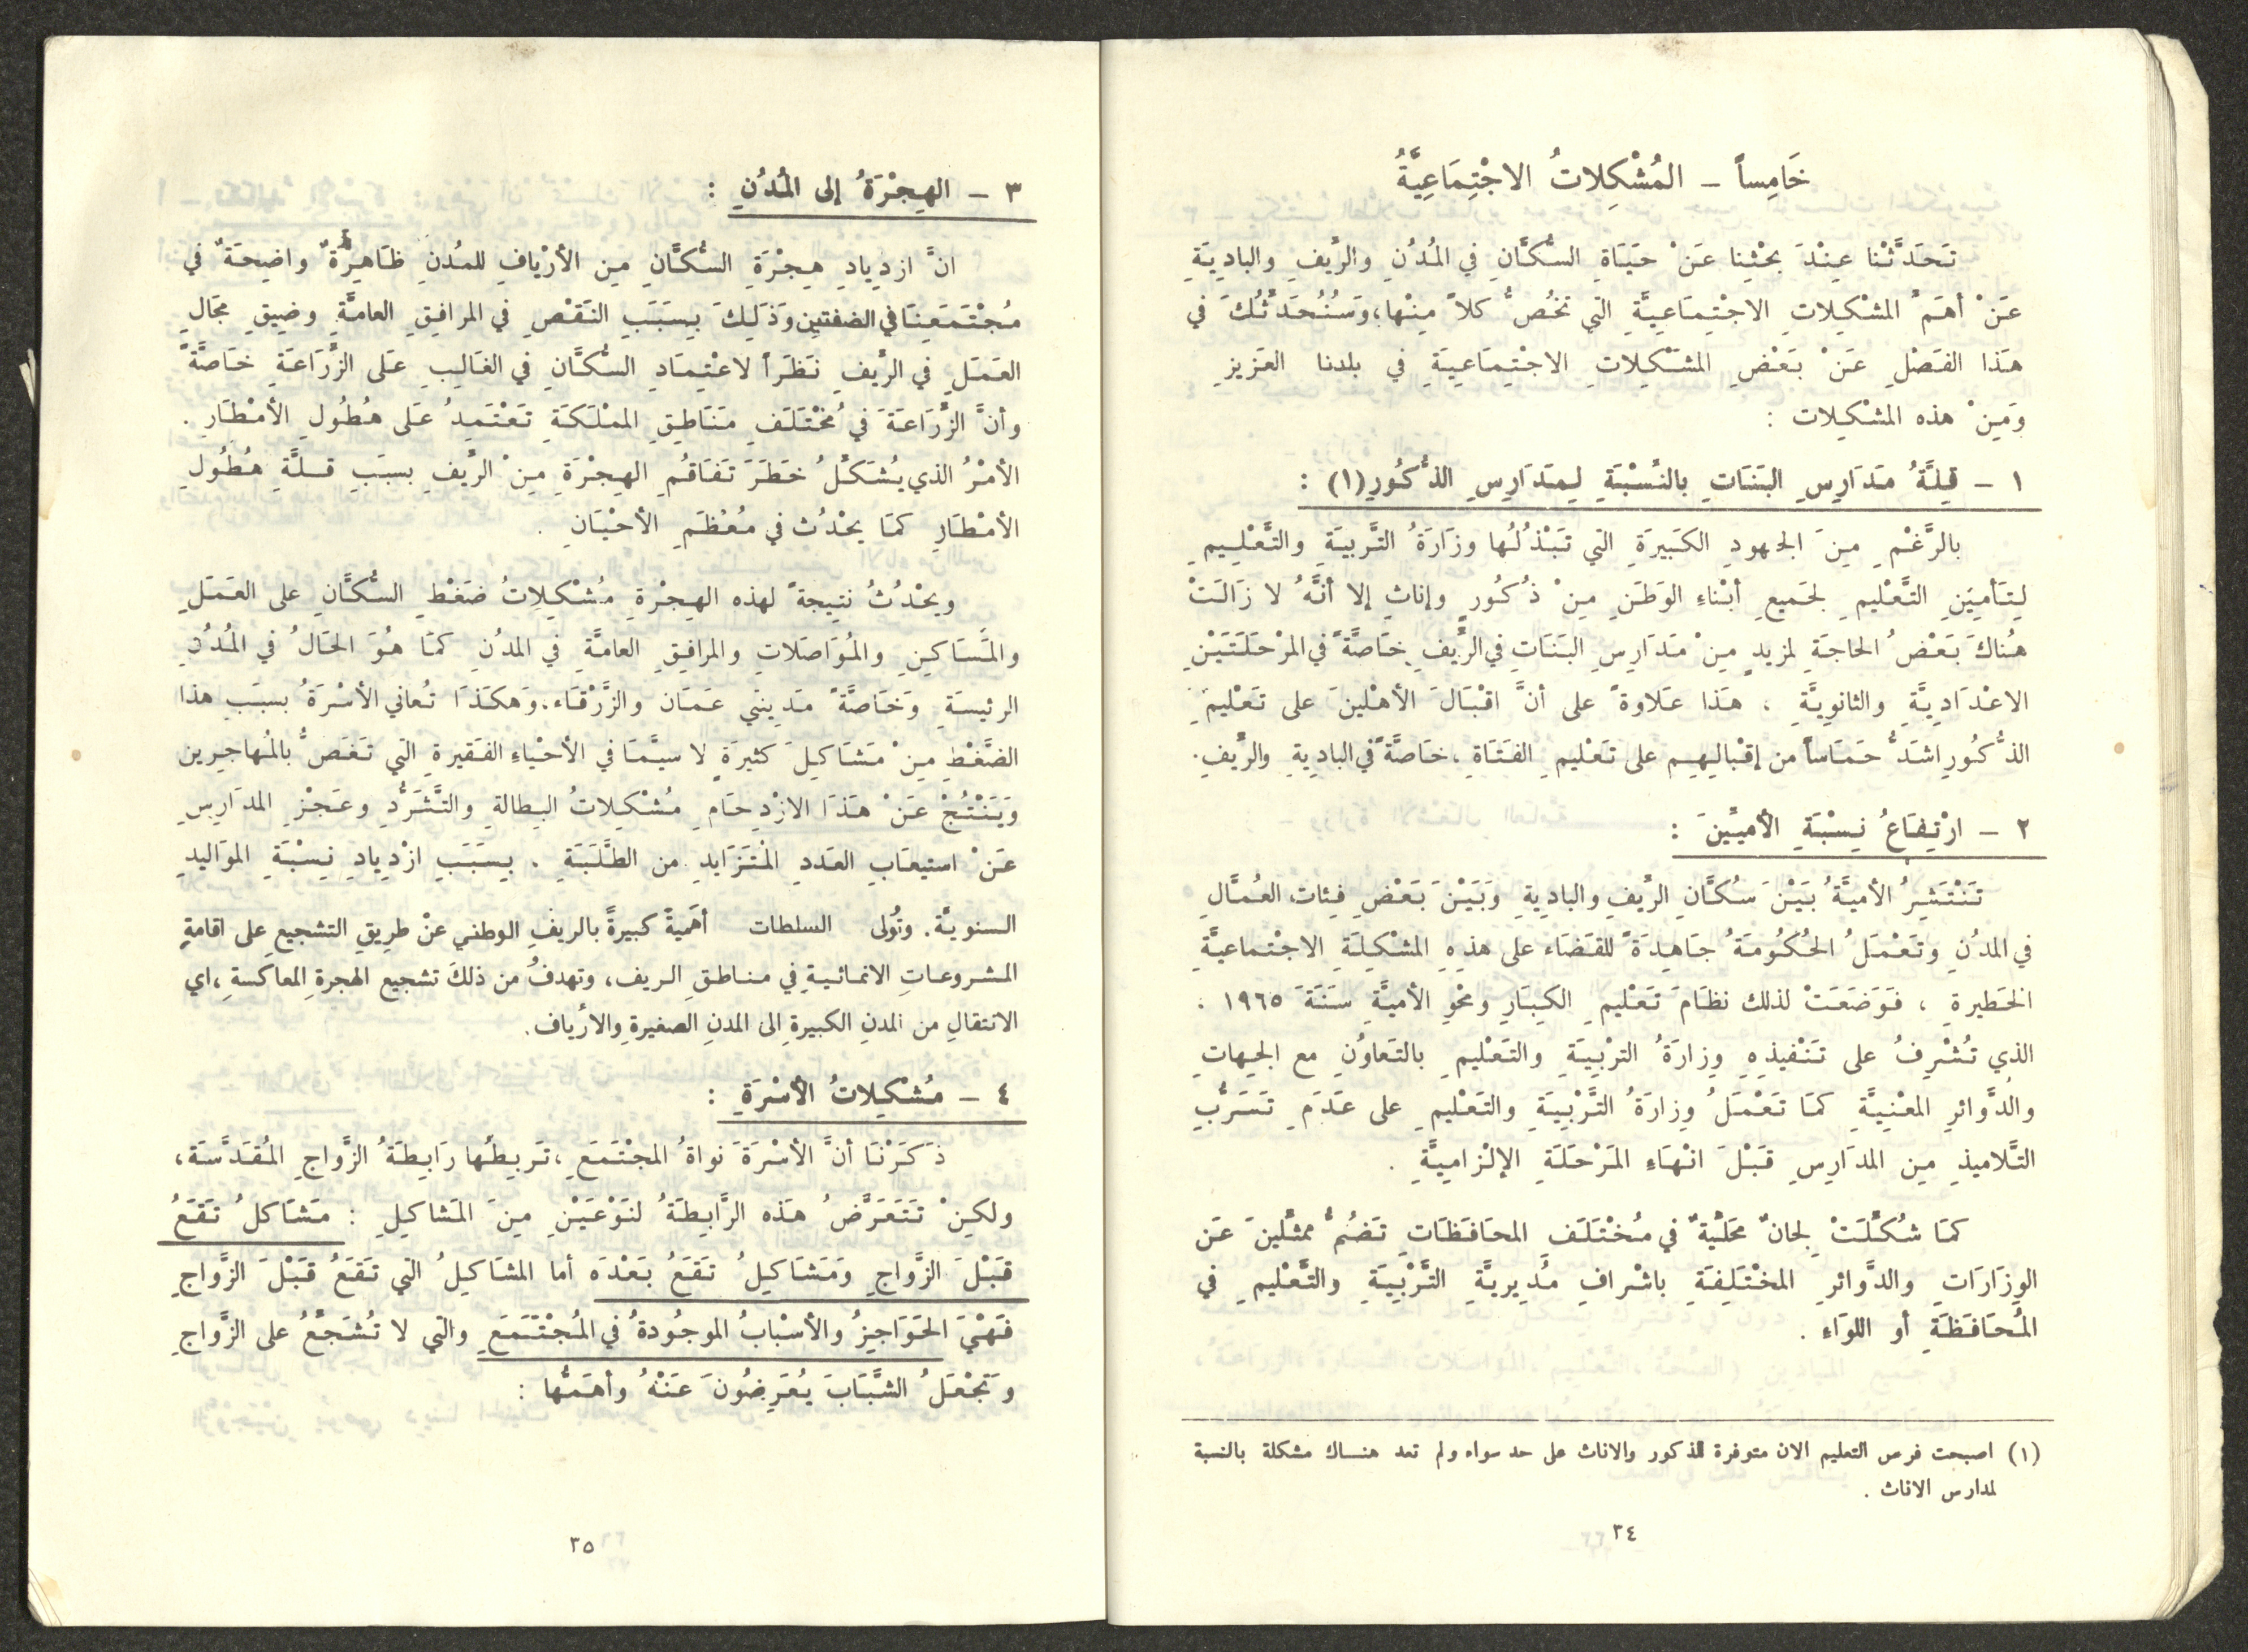 خَامِساً – المُشْكِلاتُ الاجْتِمَاعِيَّةُ
تَحَدَّثْنا عِنْدَ بحْثِنا عَنْ حَيَاة السُّكَّانِ في المُدُن والرِّيفِ والبادِيَةِ
عَنْ أهَمِّ المشْكِلاتِ الاجْتِمَاعِيَّةِ التي تخُصُّ كلاً مِنْها، وَسَنُحَدِّثُكَ في
هَذا الفَصْلِ عَنْ بَعْضِ المشْكِلاتِ الاجْتِمَاعِيَةِ في بلدنا العَزيزِ
وَمِنْ هذه المشْكِلات :
١ – قِلَّةُ مَدَارِسِ البَنَاتِ بالنِّسْبَةِ لِمَدَارِسِ الذُّكُورِ(١) :
بالرَّغْمِ مِنَ الجهودِ الكَبيرَةِ التي تَبْذُلُها وزَارَةُ التَّربيَةِ والتَّعْلِيمِ
لِتَأمِيَنِ التَّعْليمِ لجَميعِ أبْناءِ الوَطَنِ مِنْ ذُكُورٍ وإناثٍ إلا أنَّهُ لا زَالَتْ
هُناكَ بَعْضُ الحاجَةِ لمزيدٍ مِنْ مَدَارِسِ البَنَاتِ في الرِّيفِ خَاصَّةً في المرْحَلَتَيْنِ
الاعْدَادِيَّةِ والثانوِيَّةِ ، هَذا عَلاوةً على أنَّ اقْبَالَ الأهْلينَ على تَعْليمِ
الذُّكُورِ اشَدُّ حَمَاساً من إقْبالِهِم على تَعْليمِ الفَتَاةِ ، خَاصَّةً في البادِيةِ والرِّيفِ.
٢ – ارْتِفَاعُ نِسْبَةِ الأمِيِّينَ :
تَنْتَشِرُ الأميَّةُ بَيْنَ سَكَّانِ الرِّيفِ والبادِيةِ وَبَيْنَ بَعْضِ فِئات العُمَّالِ
في المدُنِ وتَعْمَلُ الحُكُومَةُ جَاهِدَةً للقَضَاء على هذِهِ المشْكِلَةِ الاجْتماعيَّةِ
الخَطيرةِ ، فَوَضَعَتْ لذلك نظَامَ تَعْليمِ الكِبَارِ ومحْوِ الأميَّةِ سَنَةَ ١٩٦٥ .
الذي تُشْرِفُ على تَنْفيذِهِ وِزارَةُ الترْبِيَةِ والتَعْليمِ بالتَعاوُنِ مع الجِهاتِ
والدَّوائرِ المعْنِيَّةِ كمَا تَعْمَلُ وِزارَةُ التَّرْبِيَةِ والتَعْليمِ على عَدَمِ تَسَرُّبِ
التَّلاميذِ مِنِ المدَارِسِ قَبْلَ انْهَاءِ المَرْحَلَةِ الإلْزاميَّةِ .
كمَا شُكِّلَتْ لِجانٌ محَلِّيَّةٌ في مُخْتَلَف المحَافَظَاتِ تَضُمُّ ممثِّلينَ عَن
الوِزَارَاتِ والدَّوائرِ المخْتَلِفَةِ باشْرافِ مُدِيريَّةِ التَّرْبِيَةِ والتَّعْليمِ في
المُحَافَظَةِ أو اللوَاءِ .
(١) اصبحت فرص التعليم الان متوفرة للذكور والاناث على حد سواء ولم تعد هنـاك مشكلة بالنسبة
لمدارس الاناث .
٣٤
٣ – الهِجْرَةُ إلى المُدُنِ :
انَّ ازدِيادِ هِجْرَةِ السُّكَّانِ مِنِ الأرْيافِ للمدُنِ ظَاهِرَةٌ واضِحَةٌ في
مُجْتَمَعِنَا في الضفتين وَذَلِكَ بِسَبَبِ النَقْصِ في المرافِقِ العامَّةِ وضِيقِ مجَالِ
العَمَلِ في الرِّيفِ نَظَراً لاعْتِمَادِ السُّكَّانِ في الغَالِبِ عَلى الزِّرَاعَةِ خَاصَّةً
وأنَّ الزِّرَاعَةَ في مُخْتَلَفِ مَنَاطِقِ الممْلَكَةِ تَعْتَمِدُ عَلى هُطُولِ الأمْطَارِ .
الأمْرُ الذي يُشَكِّلُ خَطَرَ تَفَاقُمِ الهِجْرَةِ مِنْ الرِّيفِ بسبَبِ قـلَّةِ هُطُولِ
الأمْطَارِ كمَا يحْدُث في مُعْظَمِ الأحْيَانِ .
ويحْدُثُ نتيجةً لهذه الهِجْرَةِ مُشْكِلِاتُ ضَغْطِ السُّكَّانِ على العَمَلِ
والمَسَاكِنِ والمُوَاصَلاتِ والمرافِقِ العامَّةِ في المدُنِ كمَا هُوَ الحَالُ في المُدُنِ
الرئيسَةِ وَخَاصَّةً مَدِينتي عَمَان والزَّرْقَاء. وَهكَذَا تُعاني الأسْرَةُ بسبَبِ هذا
الضَّغْطِ مِنْ مَشَاكِيلَ كثيرَةٍ لا سيَّمَا في الأحْياءِ الفَقيرةِ التي تَغَصُّ بالمُهاجِرين
وَيَنْتُجْ عَنْ هَذَا الازْدِحَامِ مُشْكِلاتُ البِطالةِ والتَّشَرُّدِ وعَجْزِ المدَارِسِ
عَنْ استيعَابِ العَددِ المُتَزَايدِ من الطَّلَبَةِ . بِسَبَبِ ازْدِيادِ نِسْبَةِ الموَاليدِ
السنويَّة. وتُولى السلطات أهَميةً كبيرةً بالريفِ الوطني عنْ طرِيقِ التشجيعِ على اقامةِ
المشروعاتِ الانمائيةِ في مناطقِ الريف، وتهدفُ من ذلكَ تشجيع الهجرةِ المعاكسةِ، اي
الانتقالِ من المدنِ الكبيرةِ الى المدنِ الصغيرةِ والأرياف.
٤ – مُشْكِلاتُ الأسْرَةِ :
ذَكَرْنَا أنَّ الأسْرَةَ نواةُ المجْتَمَعِ، تَربِطُها رَابِطَةُ الزَّواجِ المُقَدَّسَة،
ولكِنْ تَتَعَرَّضُ هَذه الرَّابِطَةُ لنَوْعَيْنِ مِنَ المَشاكِلِ : مَشَاكلُ تَقَعُ
قَبْلَ الزَّواجِ وَمَشَاكِيلُ تَقَعُ بَعْدَه أما المشَاكِيلُ التي تَقَعُ قَبْلَ الزَّواجِ
فَهْيَ الحَوَاجِزُ والأسْبابُ الموجُودةُ في المُجْتَمَعِ والتي لا تُشَجِّعُ على الزَّواجِ
وتجْعَلُ الشَّبَابَ يُعَرِضُونَ عَنْهُ وأهَمُّها :
٣٥